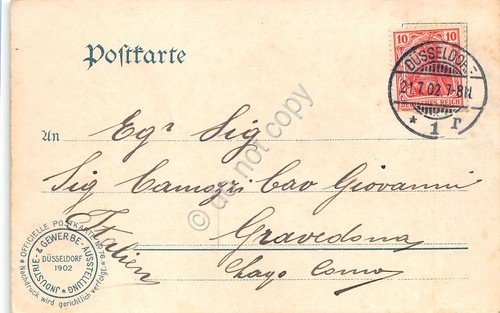 Postkarte
10 10
DEUTSCHES REICH
DÜSSELDORF
21.7.02.7-8N.
* 1 r
An
Egr Sig
Sig Camozzi Cav Giovanni
Gravedona
Lago Como
Italien
* OFFICIELLE POSTKARTE No 78 *
Nachdruck wird gerichtlich verfolgt.
INDUSTRIE- & GEWERBE-AUSSTELLUNG
DÜSSELDORF
1902
do not copy